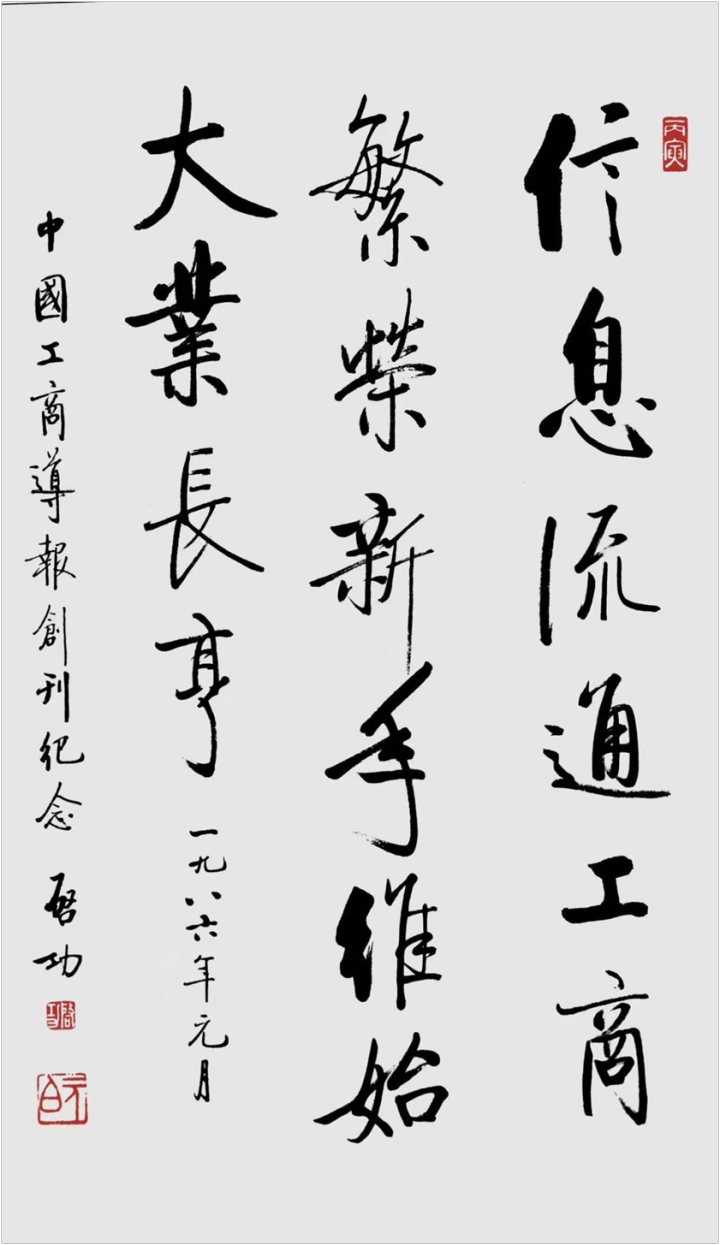 丙寅
信息流通工商
繁榮新年維始
大業長亨
一九八六年元月
中國工商導報創刊紀念
啓功
啓功
元白